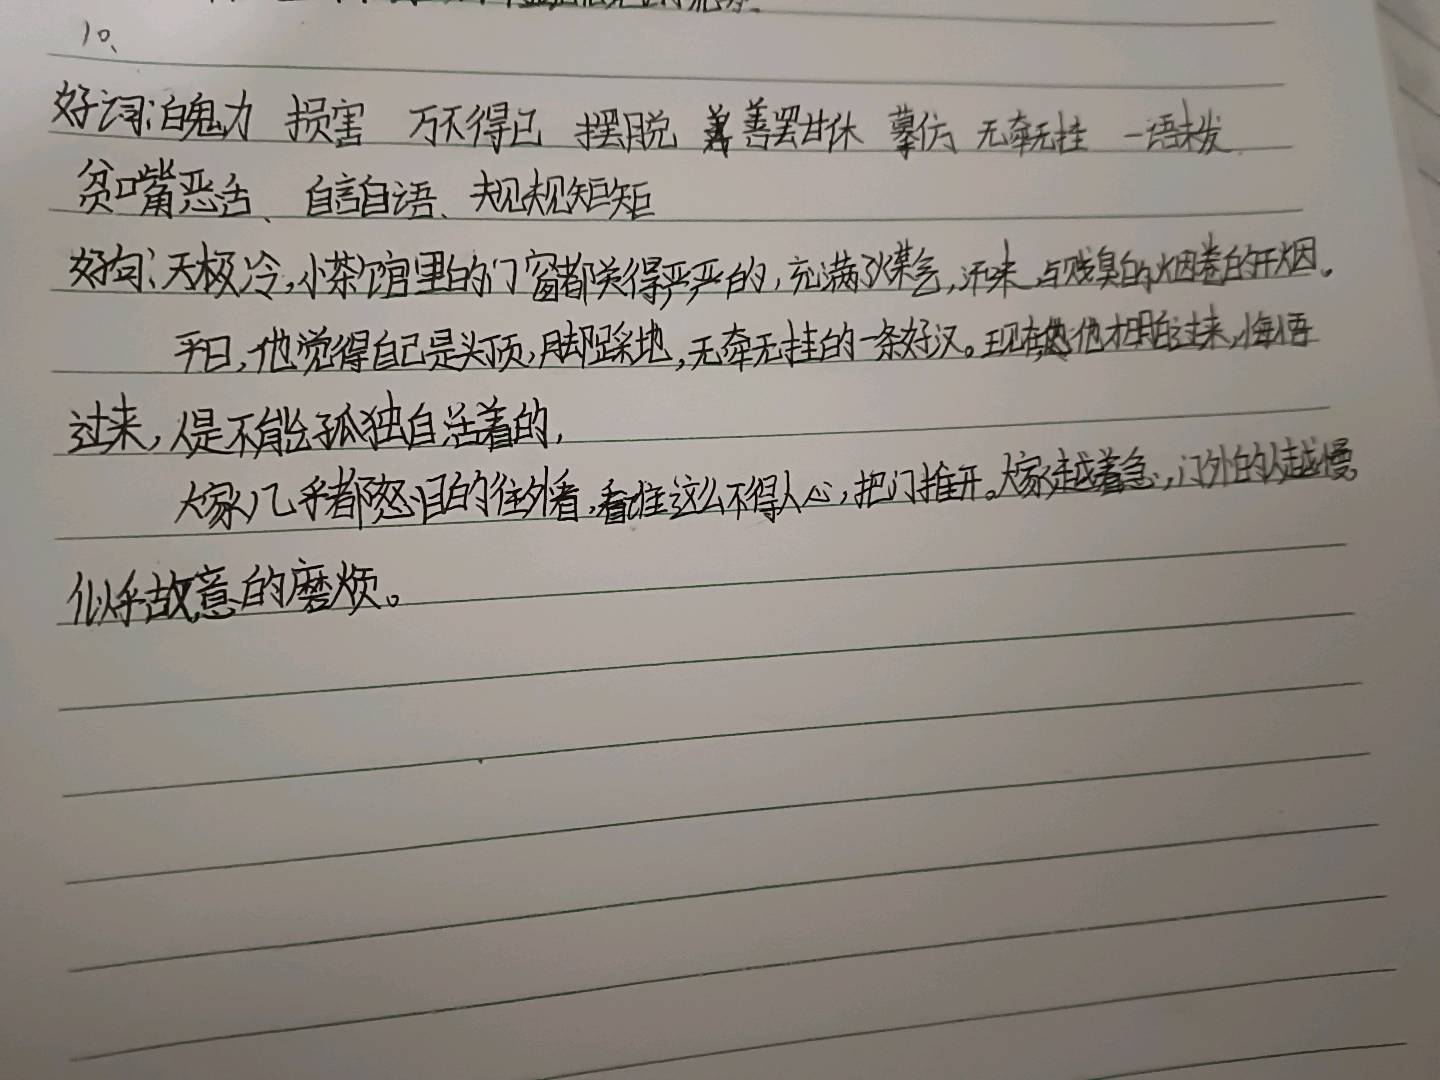 10、
好词:白魄力 损害 万不得已 摆脱 善罢甘休 摹仿 无牵无挂 一语未发
贫嘴恶舌、自言自语、规规矩矩
好句:天极冷,小茶馆里的门窗都关得严严的,充满了煤气,汗味,与贱臭的烟卷的干烟。
平日,他觉得自己是头顶,脚踩地,无牵无挂的一条好汉。现在他才明白过来,悔悟
过来,人是不能孤独自活着的,
大家几乎都怒目的往外看,看谁这么不得人心,把门推开。大家越着急,门外的人越慢。
似乎故意的磨烦。